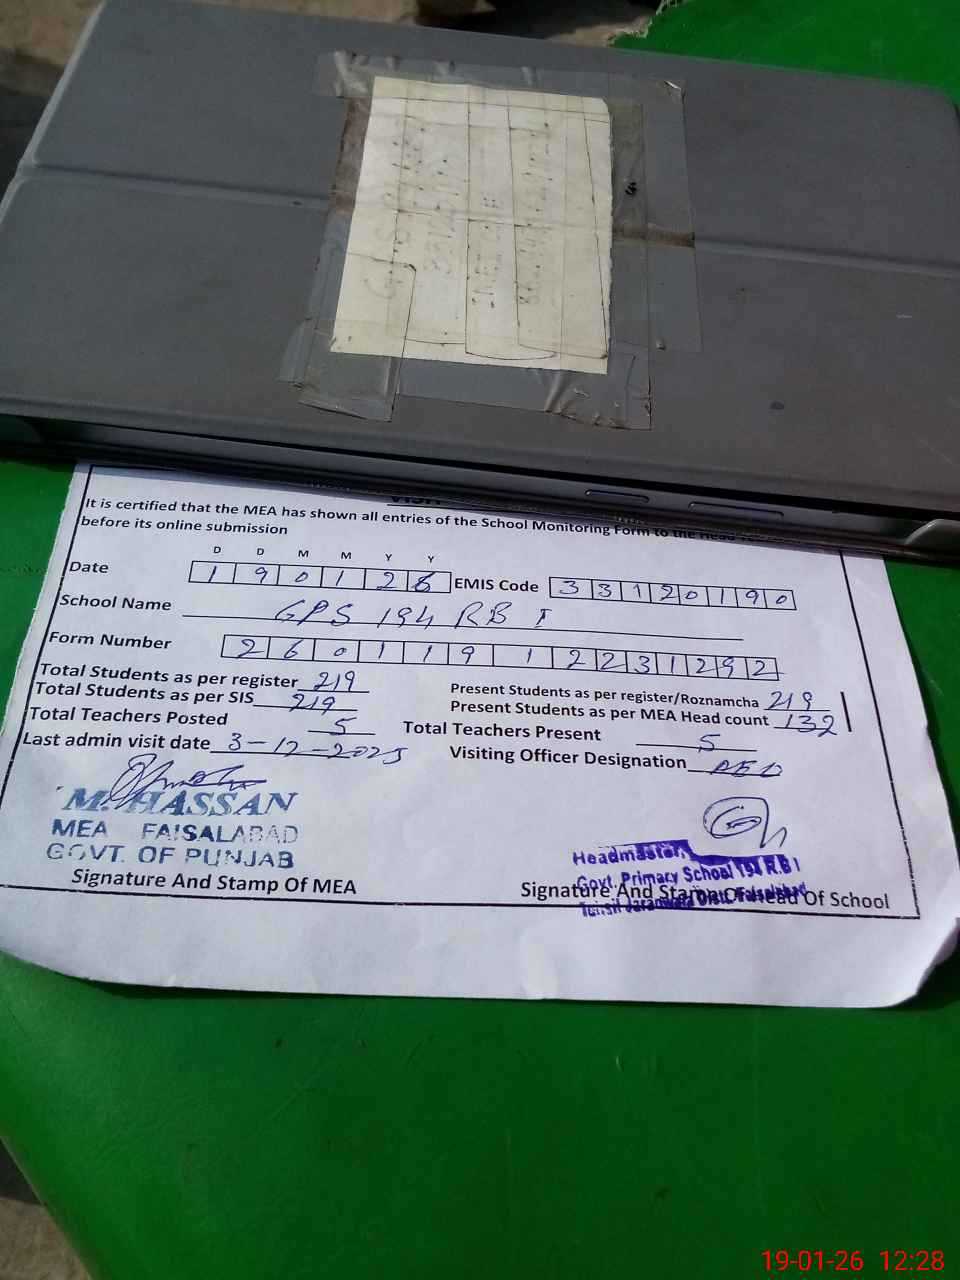 It is certified that the MEA has shown all entries of the School Monitoring Form to the Head
before its online submission
D D M M Y Y
Date 1 9 0 1 2 6 EMIS Code 3 3 1 2 0 1 9 0
School Name GPS 194 RB I
Form Number 2 6 0 1 1 9 1 2 2 3 1 2 9 2
Total Students as per register 219 Present Students as per register/Roznamcha 219
Total Students as per SIS 219 Present Students as per MEA Head count 132
Total Teachers Posted 5 Total Teachers Present 5
Last admin visit date 3-12-2025 Visiting Officer Designation
M. HASSAN
MEA FAISALABAD
GOVT. OF PUNJAB
Signature And Stamp Of MEA
Headmaster,
Govt. Primary School 194 R.B I
Signature And Stamp Of Head Of School
19-01-26 12:28